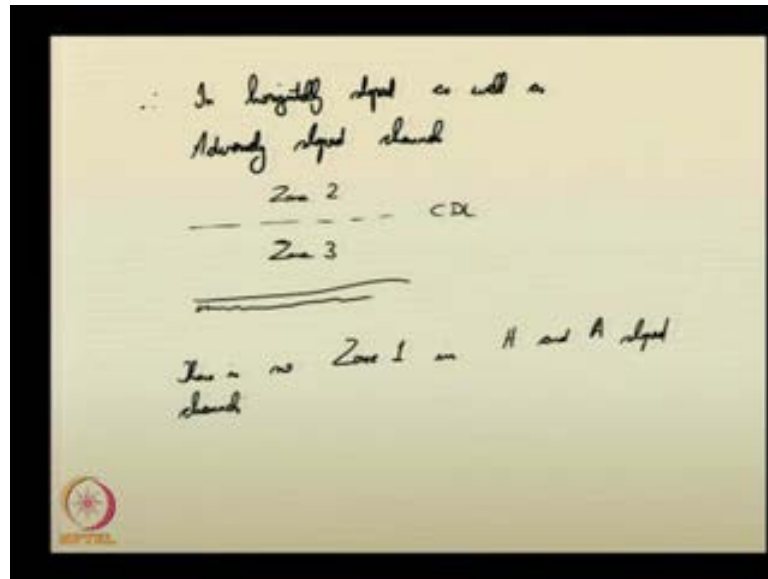 ∴ In horizontally sloped as well as
Adversely sloped channels
Zone 2
CDL
Zone 3
There is no Zone 1 in H and A sloped
channels
NPTEL